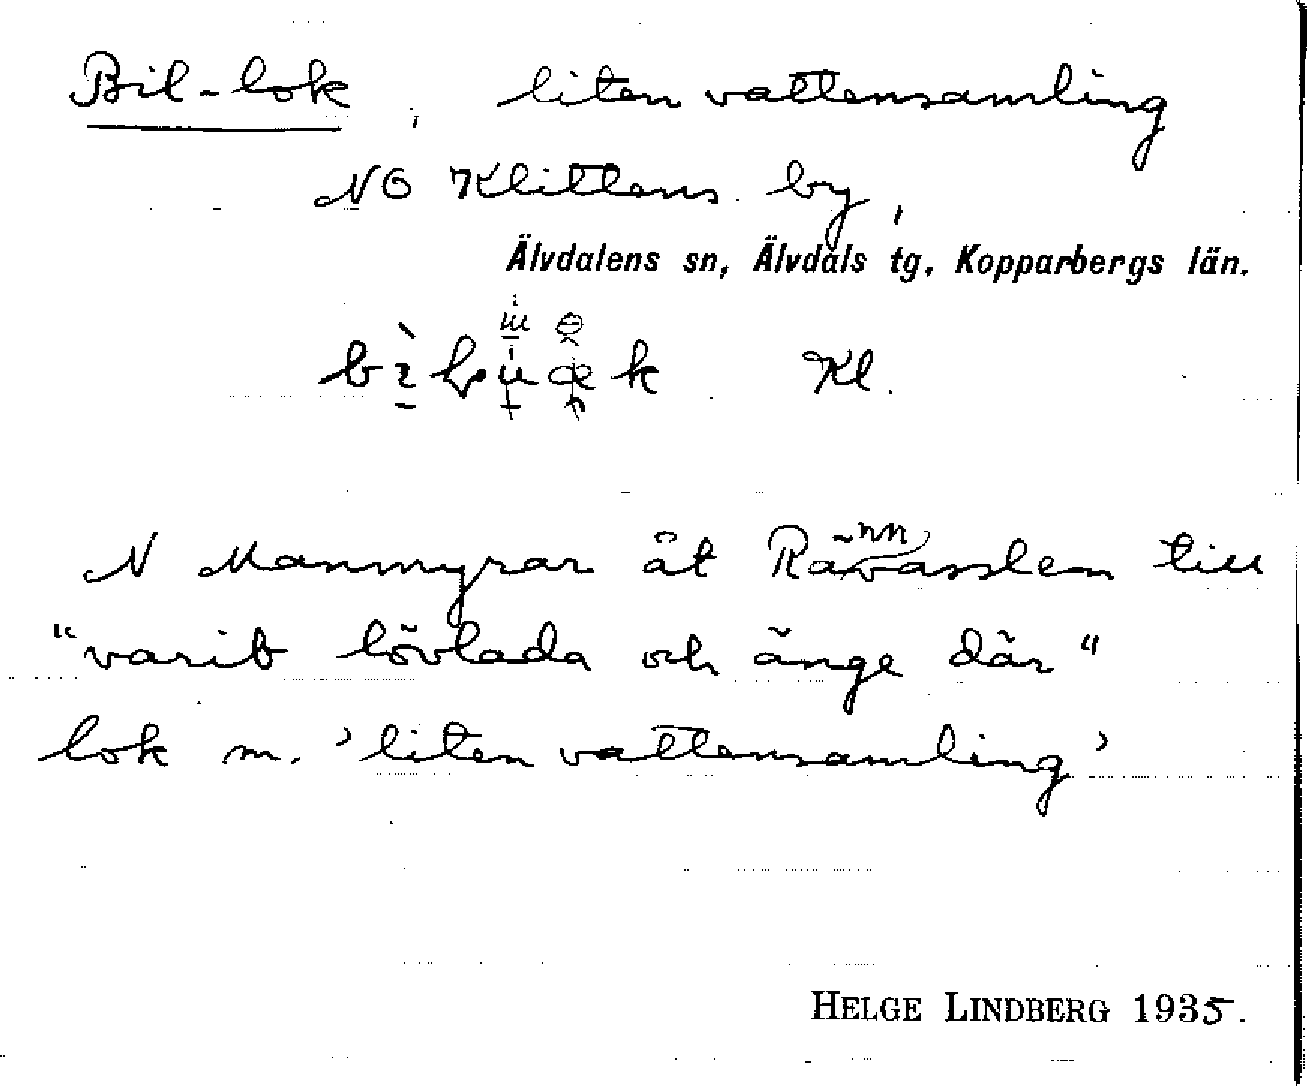 Bil-lok, liten vattensamling
NO Klittens by,
Älvdalens sn, Älvdals tg, Kopparbergs län.
Kl.
N Manmyrar åt till
"varit lövlada och änge där"
lok m. 'liten vattensamling'
HELGE LINDBERG 1935.